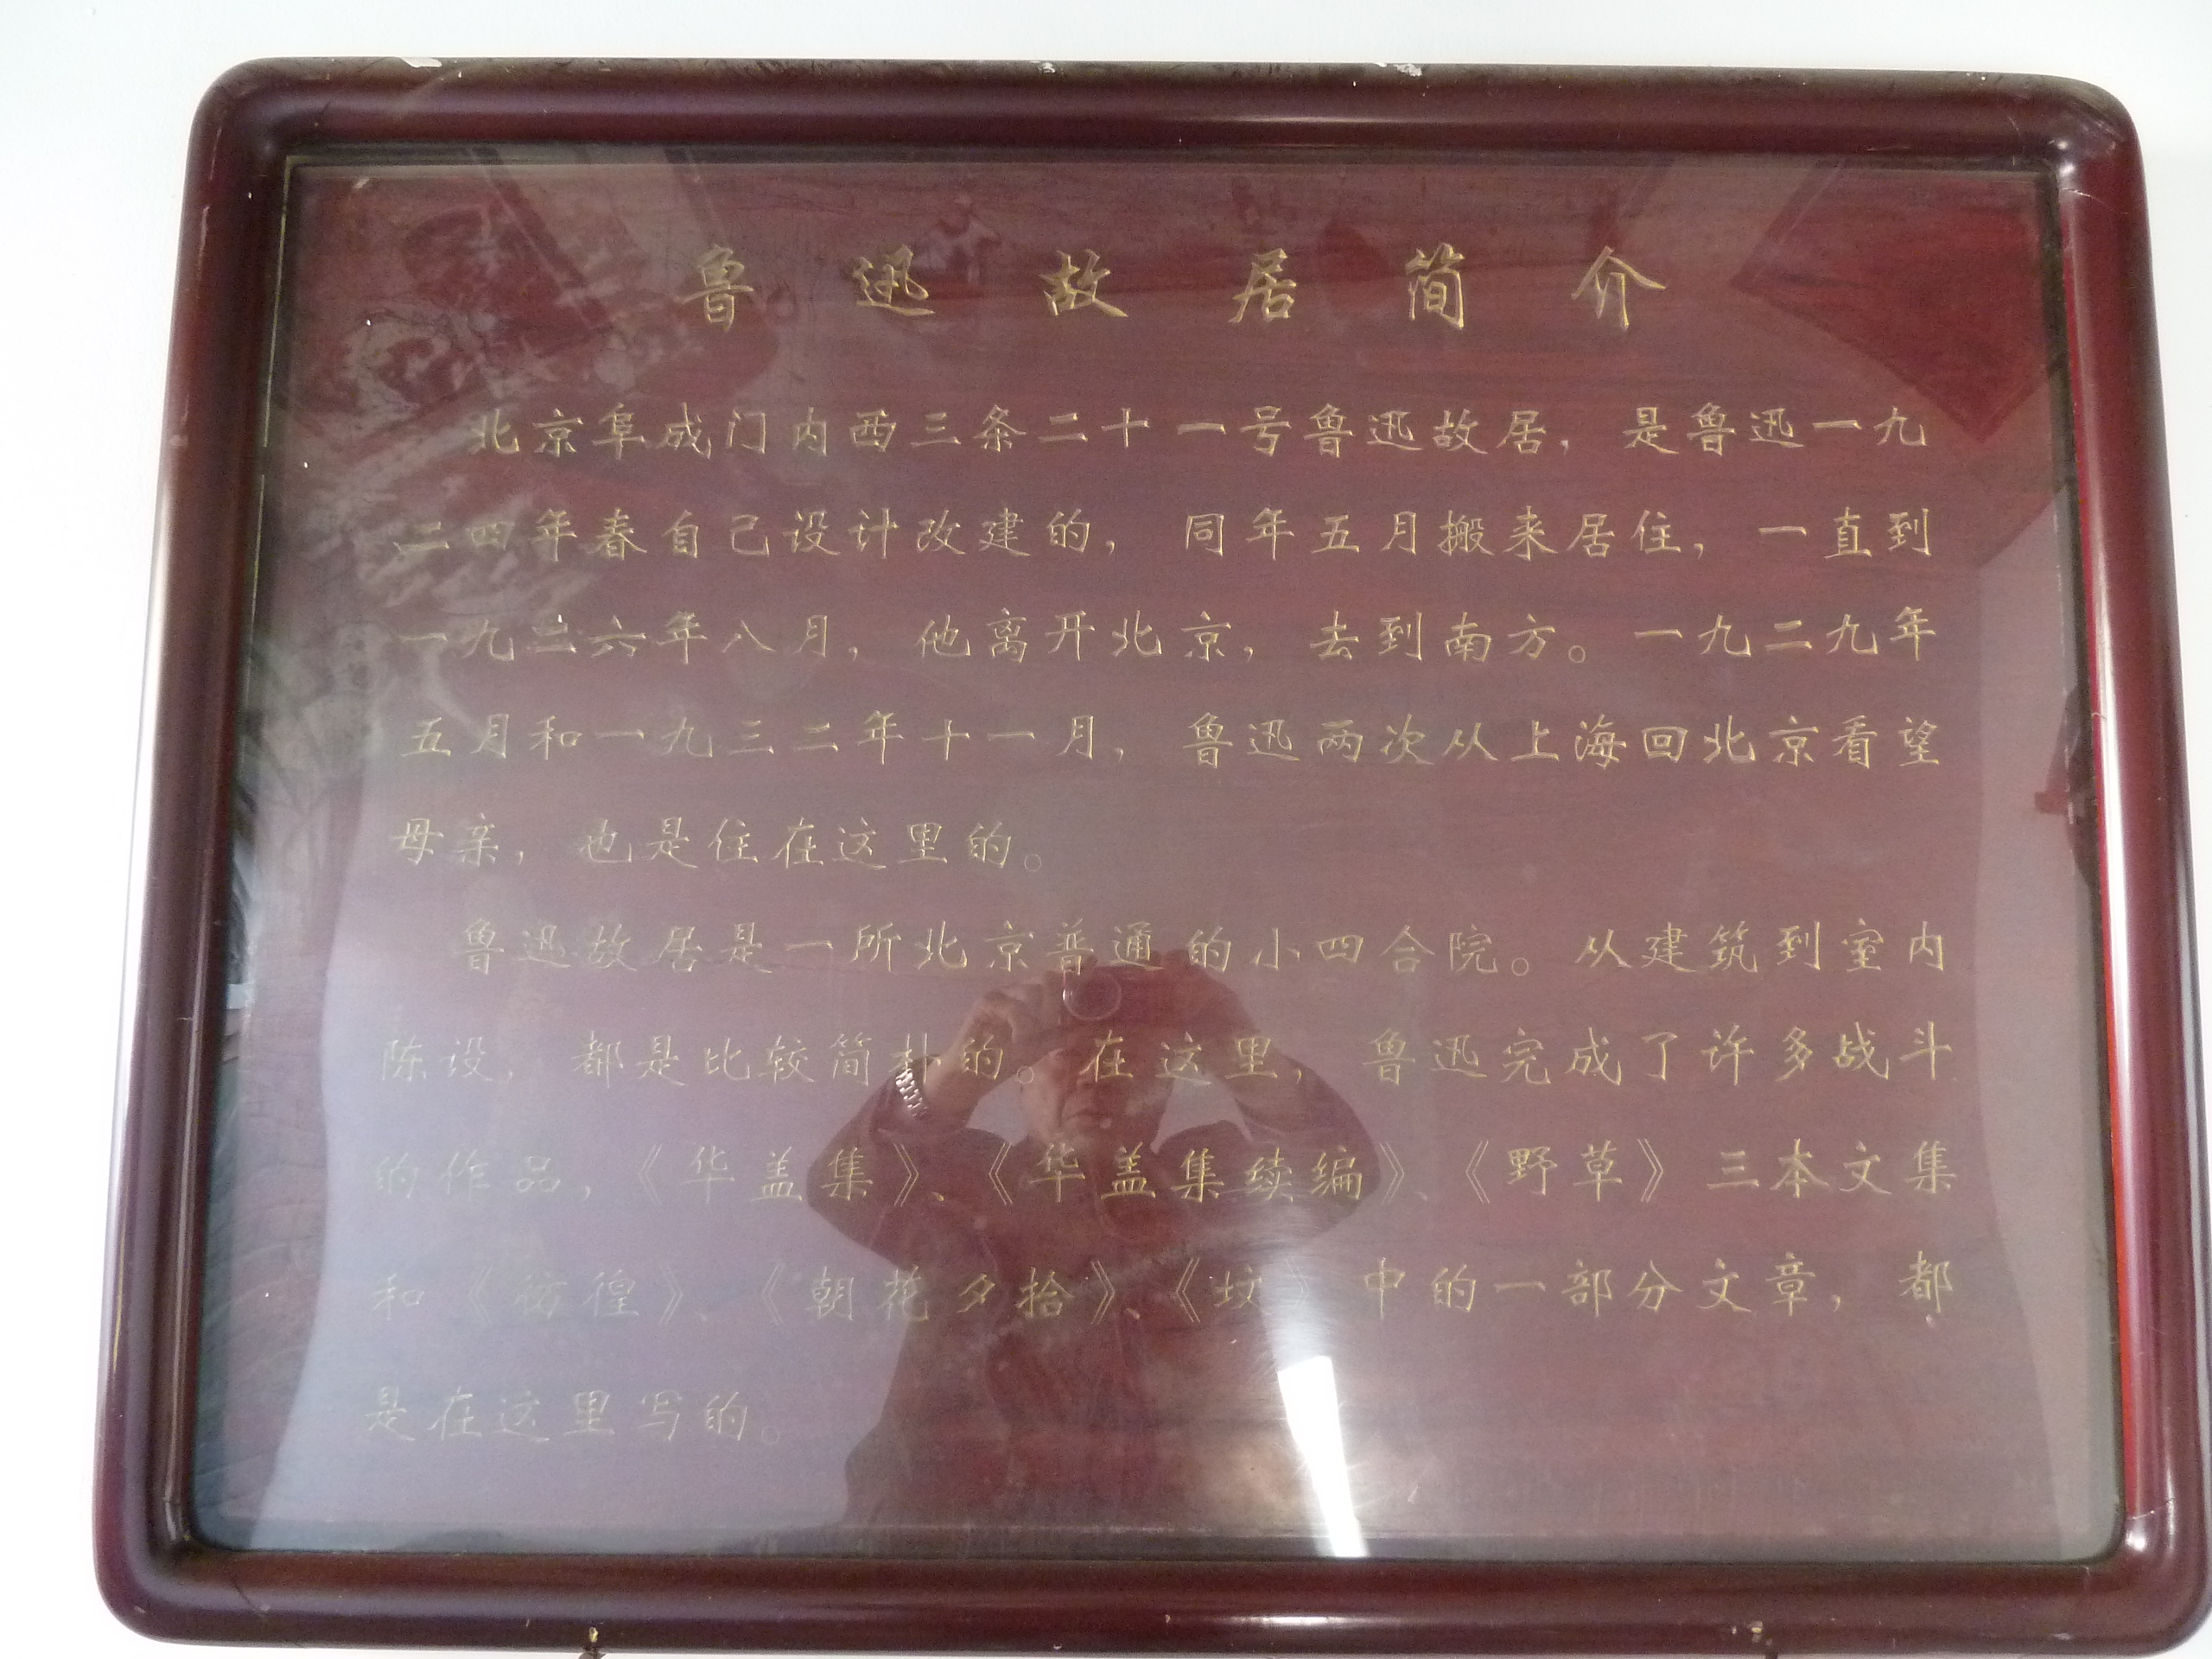 鲁迅故居简介
北京阜成门内西三条二十一号鲁迅故居，是鲁迅一九
二四年春自己设计改建的，同年五月搬来居住，一直到
一九二六年八月，他离开北京，去到南方。一九二九年
五月和一九三二年十一月，鲁迅两次从上海回北京看望
母亲，也是住在这里的。
鲁迅故居是一所北京普通的小四合院。从建筑到室内
陈设，都是比较简朴的。在这里，鲁迅完成了许多战斗
的作品，《华盖集》、《华盖集续编》、《野草》三本文集
和《彷徨》、《朝花夕拾》、《坟》中的一部分文章，都
是在这里写的。